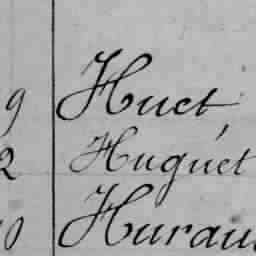 9 Huet,
2 Huguet
0 Hurau